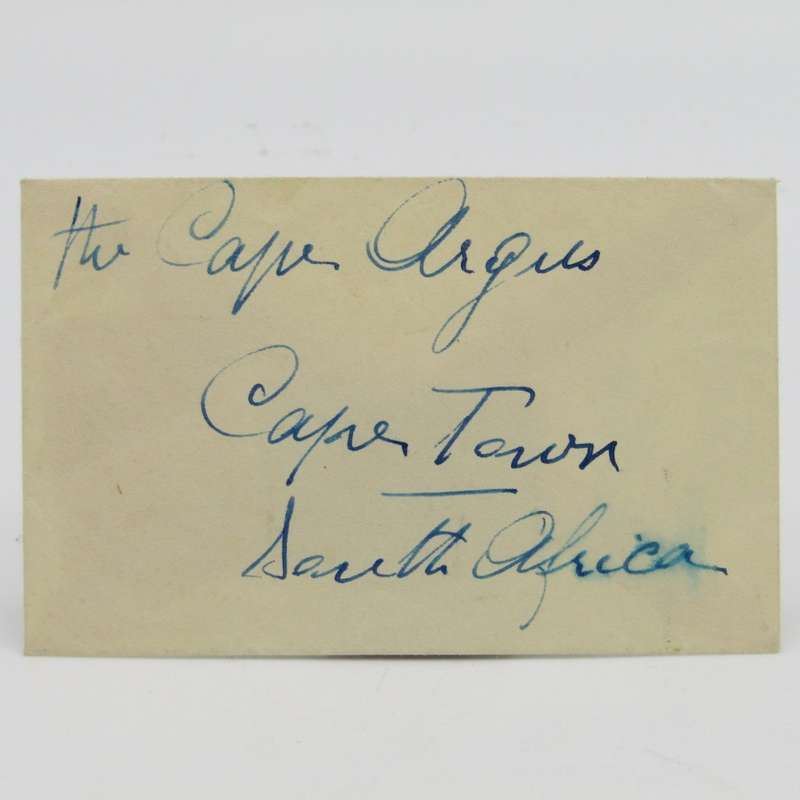 the Cape Argus
Cape Town
South Africa